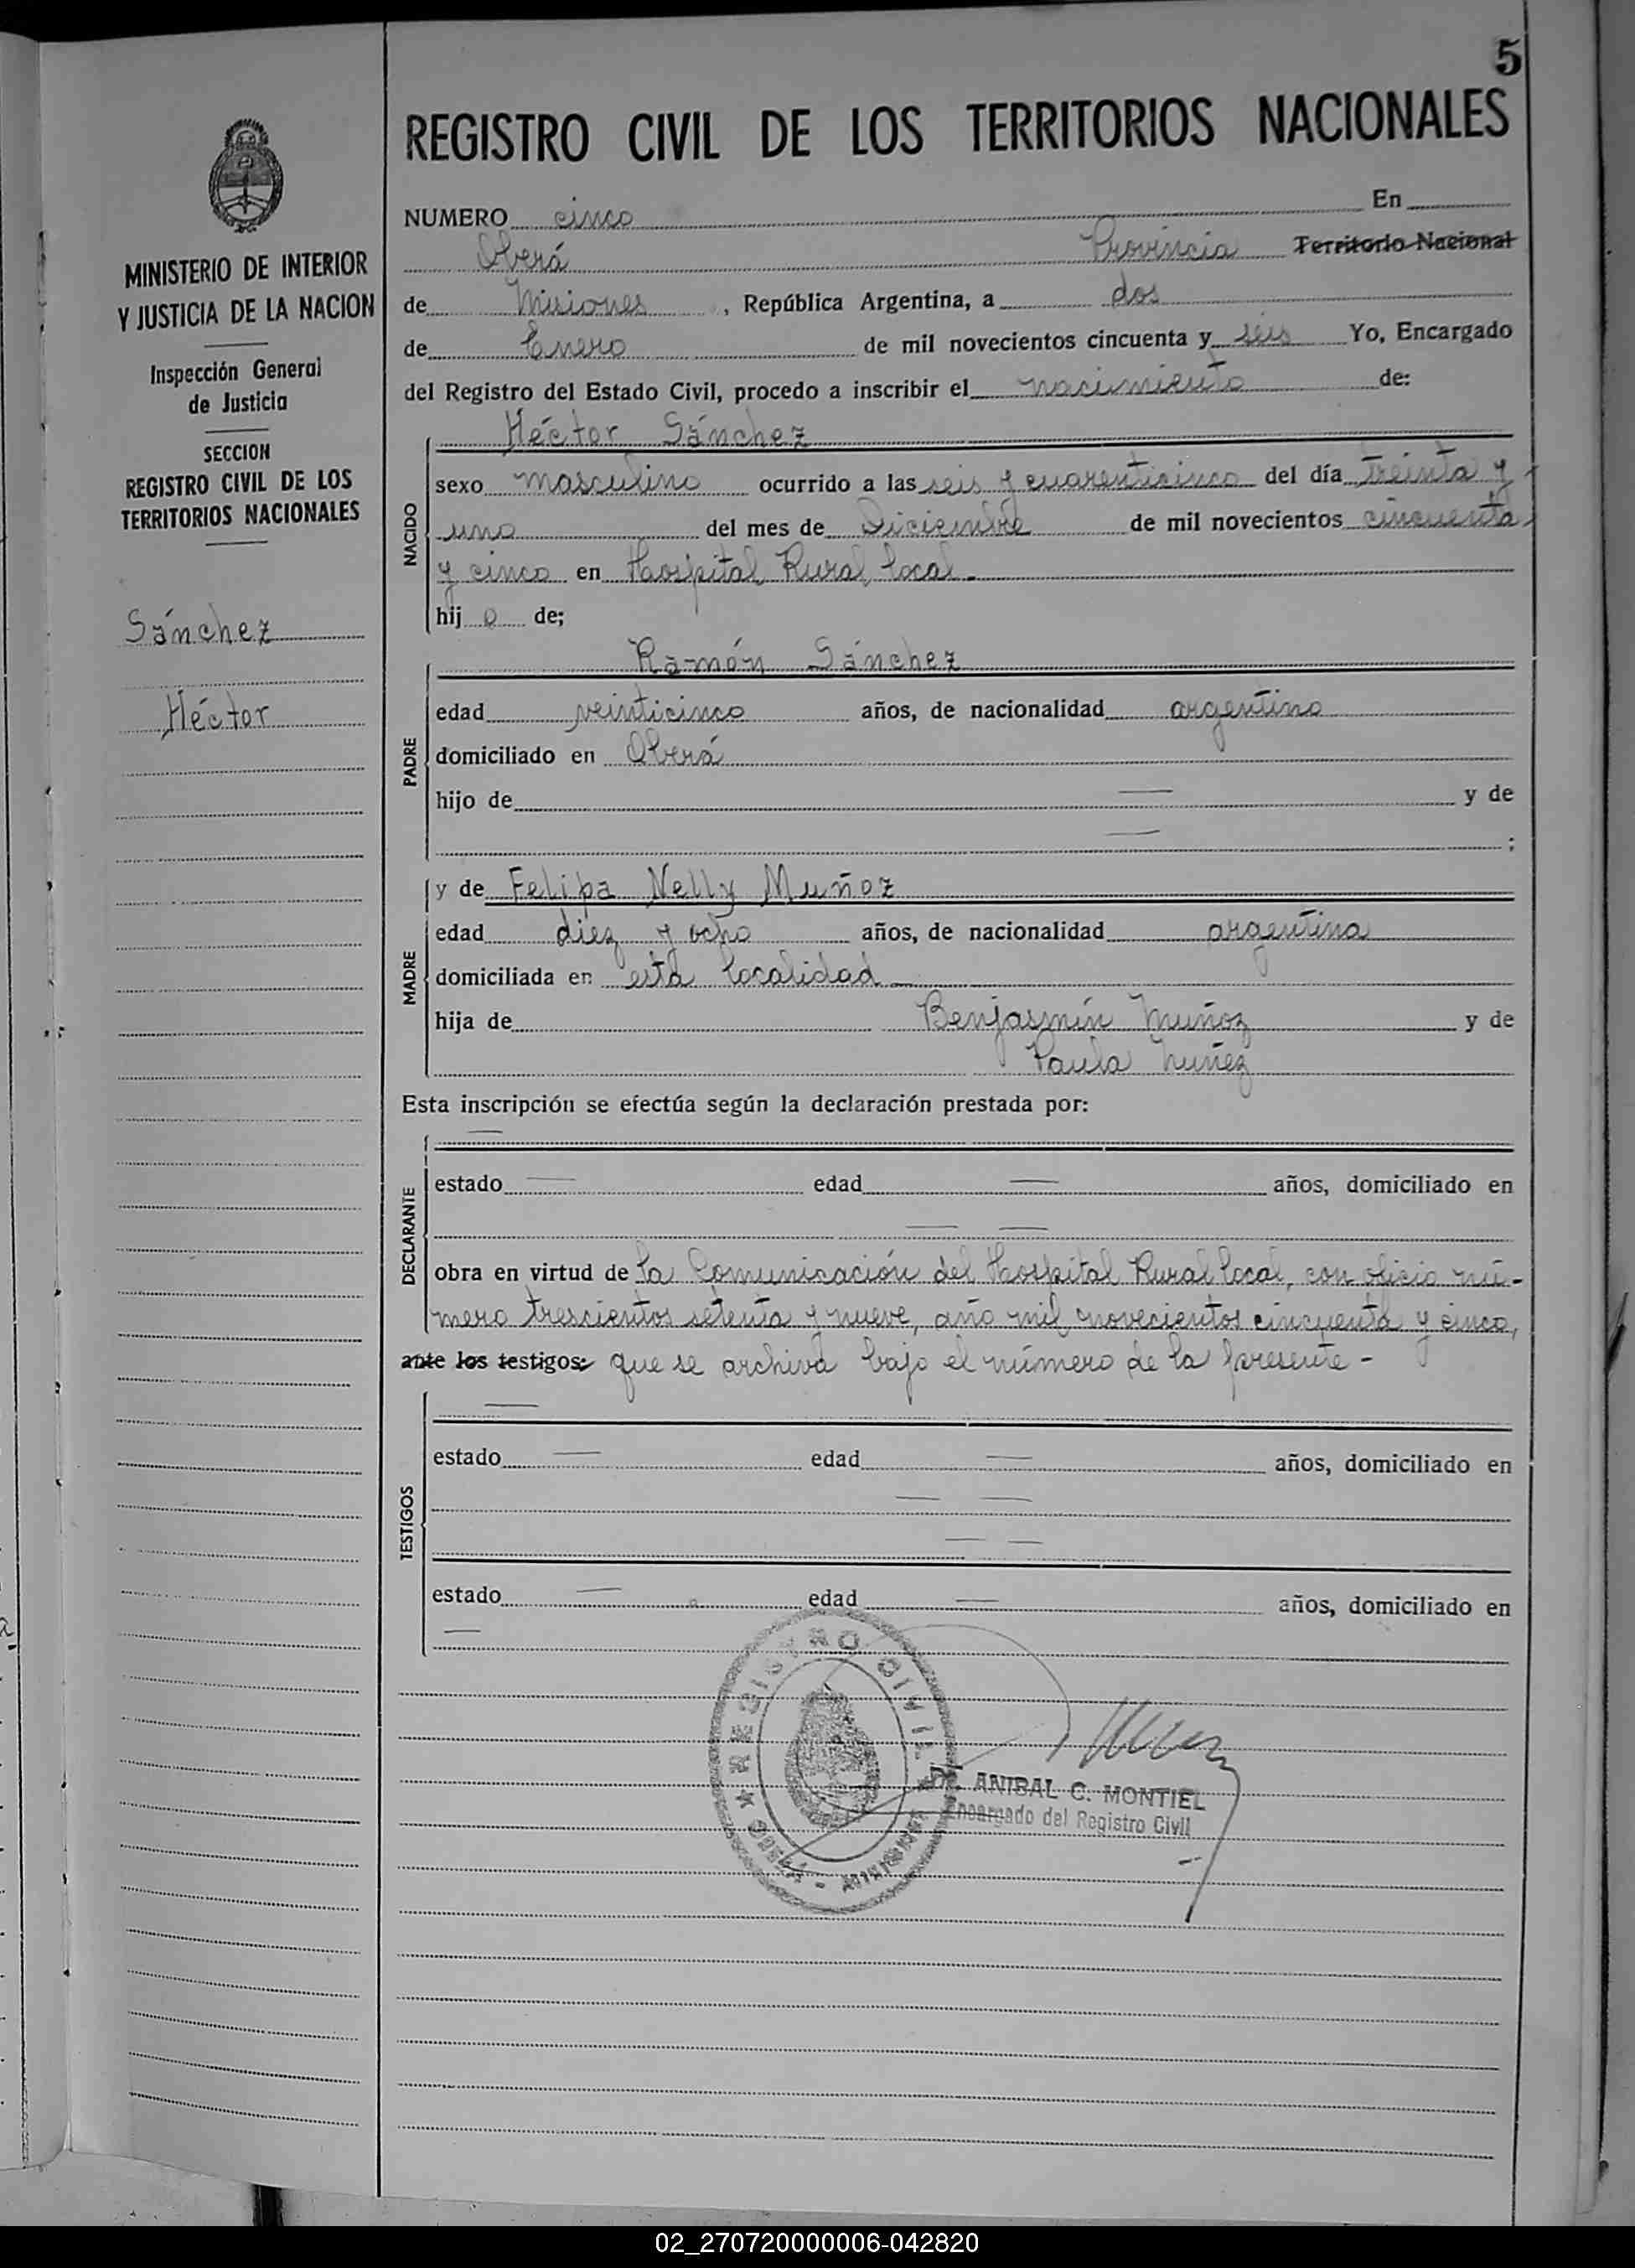 5
REGISTRO CIVIL DE LOS TERRITORIOS NACIONALES
MINISTERIO DE INTERIOR
Y JUSTICIA DE LA NACION
Inspección General
de Justicia
SECCION
REGISTRO CIVIL DE LOS
TERRITORIOS NACIONALES
Sánchez
Héctor
NUMERO cinco En
Oberá Provincia Territorio Nacional
de Misiones, República Argentina, a dos
de Enero de mil novecientos cincuenta y seis Yo, Encargado
del Registro del Estado Civil, procedo a inscribir el nacimiento de:
NACIDO
Héctor Sánchez
sexo masculino ocurrido a las seis y cuarenticinco del día treinta y
uno del mes de Diciembre de mil novecientos cincuenta
y cinco en Hospital Rural local.
hij o de;
PADRE
Ramón Sánchez
edad veinticinco años, de nacionalidad argentino
domiciliado en Oberá
hijo de — y de
— ;
MADRE
y de Felipa Nelly Muñoz
edad diez y ocho años, de nacionalidad argentina
domiciliada en esta localidad
hija de Benjasmín Muñoz y de
Paula Nuñez
Esta inscripción se efectúa según la declaración prestada por:
DECLARANTE
—
estado — edad — años, domiciliado en
— —
obra en virtud de la Comunicación del Hospital Rural local, con oficio nú-
mero trescientos setenta y nueve, año mil novecientos cincuenta y cinco,
ante los testigos: que se archiva bajo el número de la presente -
TESTIGOS
—
estado — edad — años, domiciliado en
— —
— —
estado — edad — años, domiciliado en
—
REGISTRO CIVIL
OBERA - MISIONES
ANIBAL C. MONTIEL
Encargado del Registro Civil
02_270720000006-042820